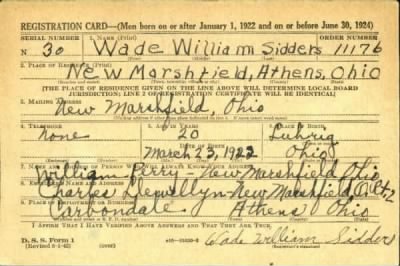 REGISTRATION CARD—(Men born on or after January 1, 1922 and on or before June 30, 1924)
SERIAL NUMBER 1. NAME (Print) ORDER NUMBER
N 30 Wade William Sidders 11176
2. PLACE OF RESIDENCE (Print)
New Marshfield, Athens, Ohio
(THE PLACE OF RESIDENCE GIVEN ON THE LINE ABOVE WILL DETERMINE LOCAL BOARD
JURISDICTION; LINE 2 OF REGISTRATION CERTIFICATE WILL BE IDENTICAL)
3. MAILING ADDRESS
New Marshfield Ohio
4. TELEPHONE 5. AGE IN YEARS 6. PLACE OF BIRTH
none 20 Luhrig
DATE OF BIRTH
March 23, 1922 Ohio
7.
William Perry - New Marshfield Ohio
8. EMPLOYER'S NAME AND ADDRESS
Charles Llewellyn - New Marshfield O. Rt 2
9. PLACE OF EMPLOYMENT OR BUSINESS
Carbondale Athens Ohio
I AFFIRM THAT I HAVE VERIFIED ABOVE ANSWERS AND THAT THEY ARE TRUE.
D. S. S. Form 1
Wade William Sidders